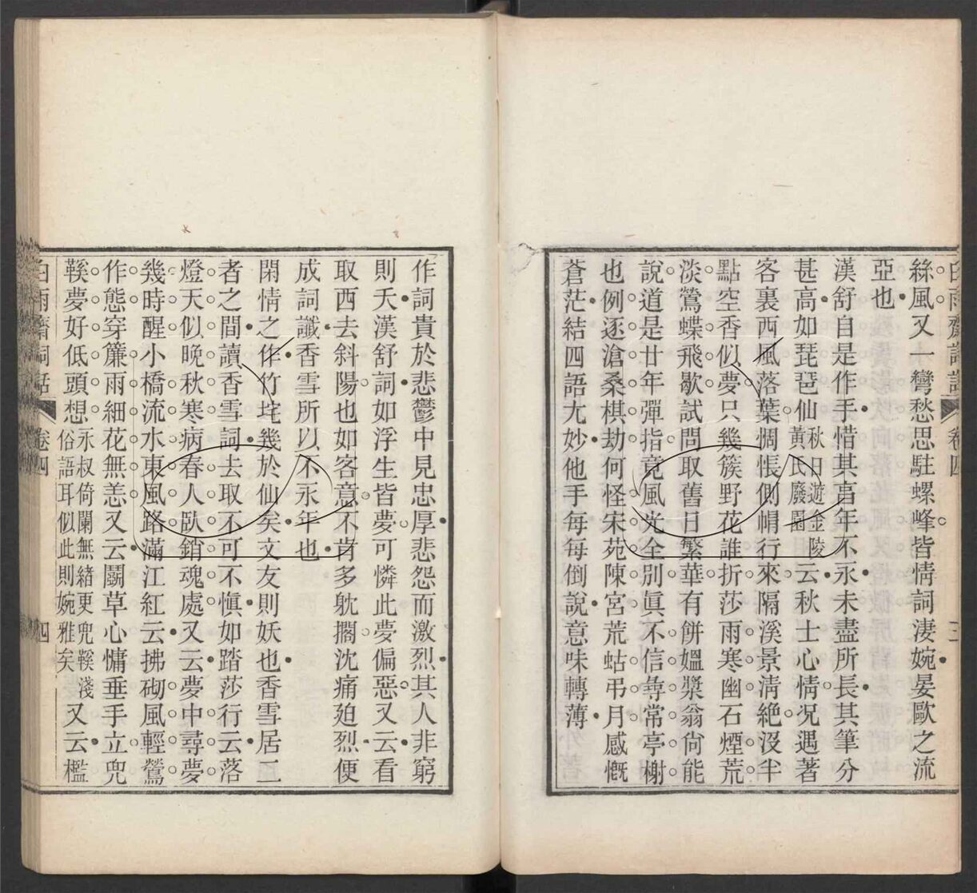 白雨齋詞話 卷四 三
絲風又一彎愁思駐螺峰皆情詞淒婉晏歐之流
亞也
漢舒自是作手惜其享年不永未盡所長其筆分
甚高如琵琶仙秋日遊金陵黃氏廢園云秋士心情况遇著
客裏西風落葉惆悵側帽行來隔溪景淸絕沒半
點空香似夢只幾簇野花誰折莎雨寒幽石煙荒
淡鶯蝶飛歇試問取舊日繁華有餅媼漿翁尙能
說道是廿年彈指竟風光全别眞不信尋常亭榭
也例逐滄桑棋劫何怪宋苑陳宮荒蛄弔月感慨
蒼茫結四語尤妙他手每每倒說意味轉薄
作詞貴於悲鬱中見忠厚悲怨而激烈其人非窮
則夭漢舒詞如浮生皆夢可憐此夢偏惡又云看
取西去斜陽也如客意不肯多躭擱沈痛廹烈便
成詞讖香雪所以不永年也
閑情之作竹垞幾於仙矣文友則妖也香雪居二
者之間讀香雪詞去取不可不愼如踏莎行云落
燈天似晚秋寒病春人臥銷魂處又云夢中尋夢
幾時醒小橋流水東風路滿江紅云拂砌風輕鶯
作態穿簾雨細花無恙又云鬭草心慵垂手立兜
鞵夢好低頭想永叔倚闌無緒更兜鞵淺俗語耳似此則婉雅矣又云檻
白雨齋詞話 卷四 四